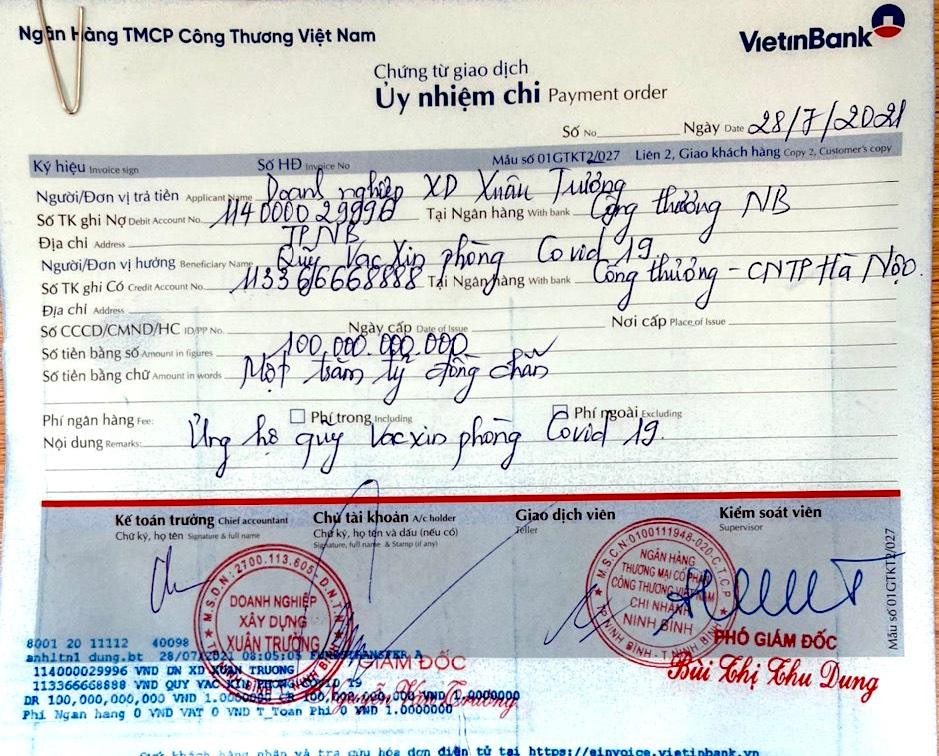 Ngân Hàng TMCP Công Thương Việt Nam
VietinBank
Chứng từ giao dịch
Ủy nhiệm chi Payment order
Số No. Ngày Date 28/7/2021
Ký hiệu Invoice sign Số HĐ Invoice No Mẫu số 01GTKT2/027 Liên 2, Giao khách hàng Copy 2, Customer's copy
Người/Đơn vị trả tiền Applicant Name Doanh nghiệp XD Xuân Trường
Số TK ghi Nợ Debit Account No. 114000029996 Tại Ngân hàng With bank Công thương NB
Địa chỉ Address TPNB
Người/Đơn vị hưởng Beneficiary Name Quỹ Vac Xin phòng Covid 19
Số TK ghi Có Credit Account No. 113366668888 Tại Ngân hàng With bank Công thương - CNTP Hà Nội.
Địa chỉ Address
Số CCCD/CMND/HC ID/PP No. Ngày cấp Date of Issue Nơi cấp Place of Issue
Số tiền bằng số Amount in figures 100.000.000.000
Số tiền bằng chữ Amount in words Một trăm tỷ đồng chẵn
Phí ngân hàng Fee: Phí trong Including Phí ngoài Excluding
Nội dung Remarks: Ủng hộ quỹ Vacxin phòng Covid 19.
Kế toán trưởng Chief accountant Chủ tài khoản A/c holder Giao dịch viên Kiểm soát viên
Chữ ký, họ tên Signature & full name Chữ ký, họ tên và dấu (nếu có) Teller Supervisor
Signature, full name & Stamp (if any)
Mẫu số 01GTKT2/027
M.S.D.N: 2700.113.605-D.N.T.N
DOANH NGHIỆP
XÂY DỰNG
XUÂN TRƯỜNG
M.S.C.N:0100111948-020-C.T.C.P
NGÂN HÀNG
THƯƠNG MẠI CỔ PHẦN
CÔNG THƯƠNG VIỆT NAM
CHI NHÁNH
NINH BÌNH
TP NINH BÌNH - T.NINH BÌNH
PHÓ GIÁM ĐỐC
Bùi Thị Thu Dung
GIÁM ĐỐC
Nguyễn Văn Trường
8001 20 11112 40098
anhltn1 dung.bt 28/07/2021 08:05:05 A
114000029996 VND DN XD XUAN TRUONG
113366668888 VND QUY VAC XIN PHONG COVID 19
DR 100,000,000,000 VND 1.0000000 CR 100,000,000,000 VND 1.0000000
Phi Ngan hang 0 VND VAT 0 VND T_Toan Phi 0 VND 1.0000000
Quý khách hàng nhận và tra cứu hóa đơn điện tử tại https://einvoice.vietinbank.vn